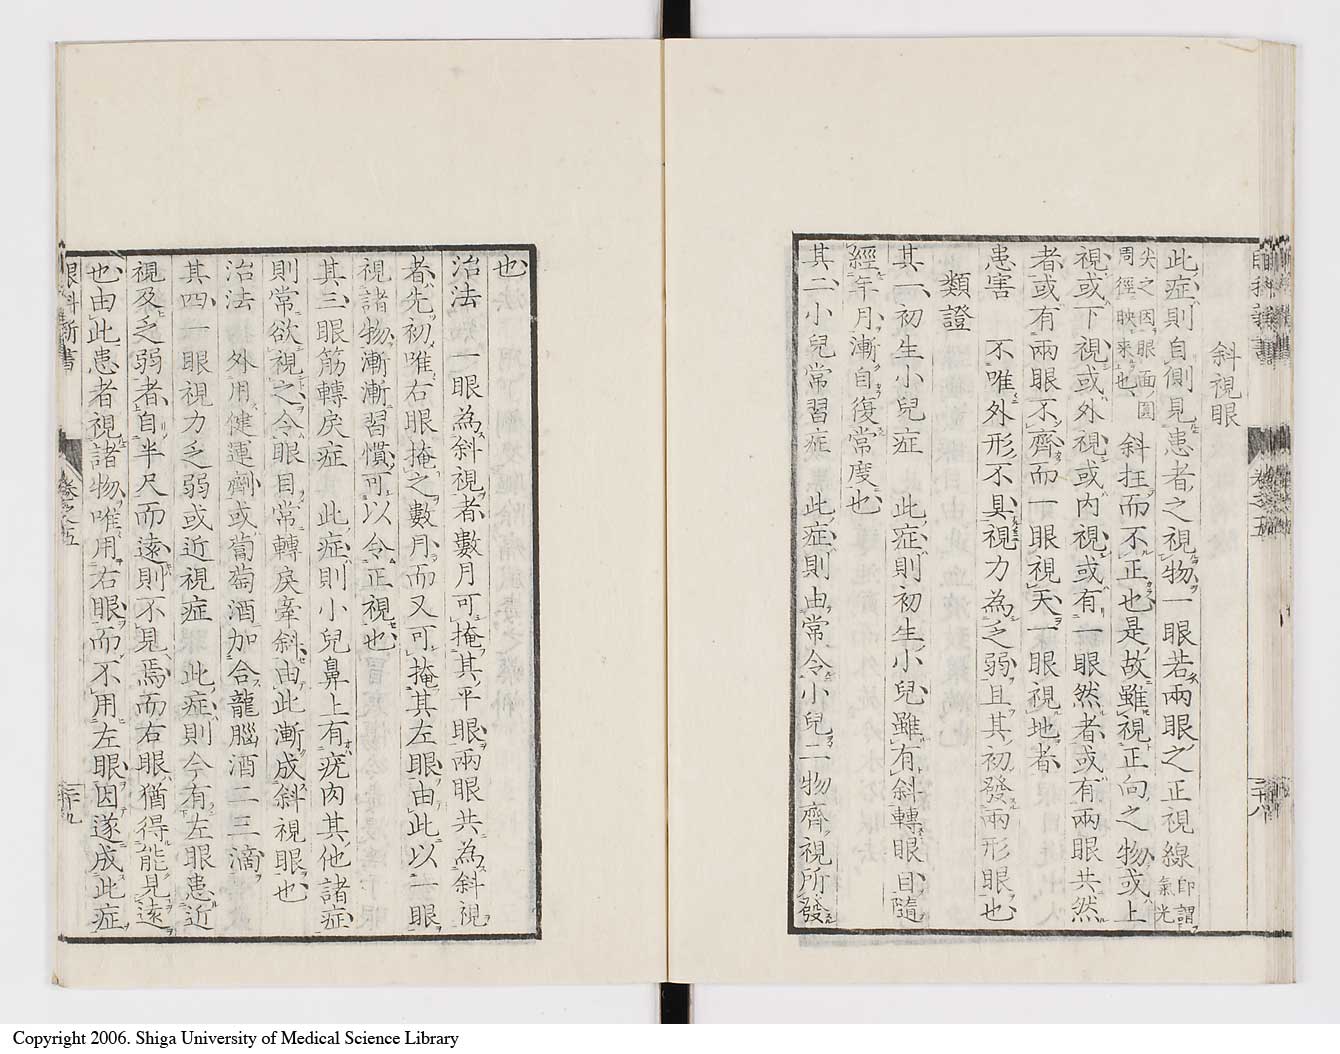 斜視眼
此症則自側見患者之視物一眼若兩眼之正視線印謂氣光
尖之因眼面圓周徑映来也 斜抂而不正也是故雖視正向之物或上
視或下視或外視或内視或有一眼然者或有兩眼共然
者或有兩眼不齊而一眼視天一眼視地者
患害 不唯外形不具視力為乏弱且其初發兩形眼也
類證
其一初生小兒症 此症則初生小兒雖有斜轉眼目隨
經年月漸自復常度也
其二小兒常習症 此症則由常令小兒二物齊視所發
卷之五
三十八
也
治法 一眼為斜視者數月可掩其平眼兩眼共為斜視
者先初唯右眼掩之數月而又可掩其左眼由此以一眼
視諸物漸漸習慣可以令正視也
其三眼筋轉戾症 此症則小兒鼻上有疣肉其他諸症
則常欲視之令眼目常轉戾牽斜由此漸成斜視眼也
治法 外用健運劑或蔔萄酒加合龍腦酒二三滴
其四一眼視力乏弱或近視症 此症則今有左眼患近
視及之弱者自半尺而遠則不見焉而右眼猶得能見遠
也由此患者視諸物唯用右眼而不用左眼因遂成此症
眼科新書
卷之五
三十九
Copyright 2006. Shiga University of Medical Science Library